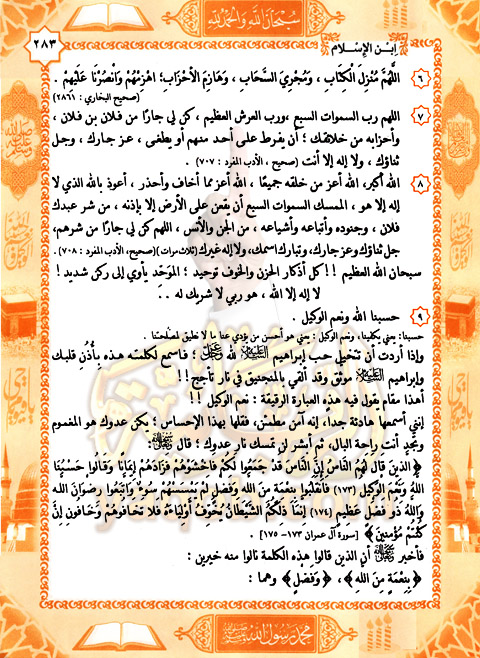 سبحان الله والحمد لله
٢٨٣
ابن الإسلام
٦ اللَّهُمَّ مُنْزِلَ الْكِتَابِ ، وَمُجْرِيَ السَّحَابِ ، وَهَازِمَ الأَحْزَابِ؛ اهْزِمْهُمْ وَانْصُرْنَا عَلَيْهِمْ .
(صحيح البخاري : ٢٨٦١)
٧ اللهم رب السموات السبع ، ورب العرش العظيم ، كن لي جارًا من فلان بن فلان ،
وأحزابه من خلائقك ؛ أن يفرط على أحد منهم أو يطغى ، عز جارك ، وجل
ثناؤك ، ولا إله إلا أنت (صحيح ، الأدب المفرد : ٧٠٧) .
٨ الله أكبر، الله أعز من خلقه جميعًا ، الله أعز مما أخاف وأحذر ، أعوذ بالله الذي لا
إله إلا هو ، الممسك السموات السبع أن يقعن على الأرض إلا بإذنه ، من شر عبدك
فلان ، وجنوده وأتباعه وأشياعه ، من الجن والأنس ، اللهم كن لي جارًا من شرهم،
جل ثناؤك وعز جارك، وتبارك اسمك، ولا إله غيرك (ثلاث مرات)(صحيح، الأدب المفرد : ٧٠٨) .
سبحان الله العظيم !! كل أذكار الحزن والخوف توحيد ؛ الموَحّد يأوي إلى ركن شديد !
لا إله إلا الله ، هو ربي لا شريك له ..
٩ حسبنا الله ونعم الوكيل .
حسبنا: يعني يكفينا، ونعم الوكيل : يعني هو أحسن من يؤدي عنا ما لا نطيق لمصلحتنا .
وإذا أردت أن تتخيل حب إبراهيم لله ؛ فاسمع لكلمته هذه بأُذن قلبك
وإبراهيم موثق وقد أُلقي بالمنجنيق في نار تأجج !!
أهذا مقام يقول فيه هذه العبارة الرقيقة : نعم الوكيل !!
إنني أسمعها هادئة جدا، إنه آمن مطمئن، فقلها بهذا الإحساس ؛ يكن عدوك هو المغموم
وتجد أنت راحة البال، ثم أبشر لن تمسك نار عدوك ؛ قال :
﴿ الَّذِينَ قَالَ لَهُمُ النَّاسُ إِنَّ النَّاسَ قَدْ جَمَعُوا لَكُمْ فَاخْشَوْهُمْ فَزَادَهُمْ إِيمَانًا وَقَالُوا حَسْبُنَا
اللَّهُ وَنِعْمَ الْوَكِيلُ (١٧٣) فَانْقَلَبُوا بِنِعْمَةٍ مِنَ اللَّهِ وَفَضْلٍ لَمْ يَمْسَسْهُمْ سُوءٌ وَاتَّبَعُوا رِضْوَانَ اللَّهِ
وَاللَّهُ ذُو فَضْلٍ عَظِيمٍ (١٧٤) إِنَّمَا ذَلِكُمُ الشَّيْطَانُ يُخَوِّفُ أَوْلِيَاءَهُ فَلَا تَخَافُوهُمْ وَخَافُونِ إِنْ
كُنْتُمْ مُؤْمِنِينَ ﴾ [سورة آل عمران ١٧٣- ١٧٥] .
فأخبر أن الذين قالوا هذه الكلمة نالوا منه خيرين :
﴿ بِنِعْمَةٍ مِنَ اللَّهِ ﴾ ، ﴿ وَفَضْلٍ ﴾ وهما :
محمد رسول الله